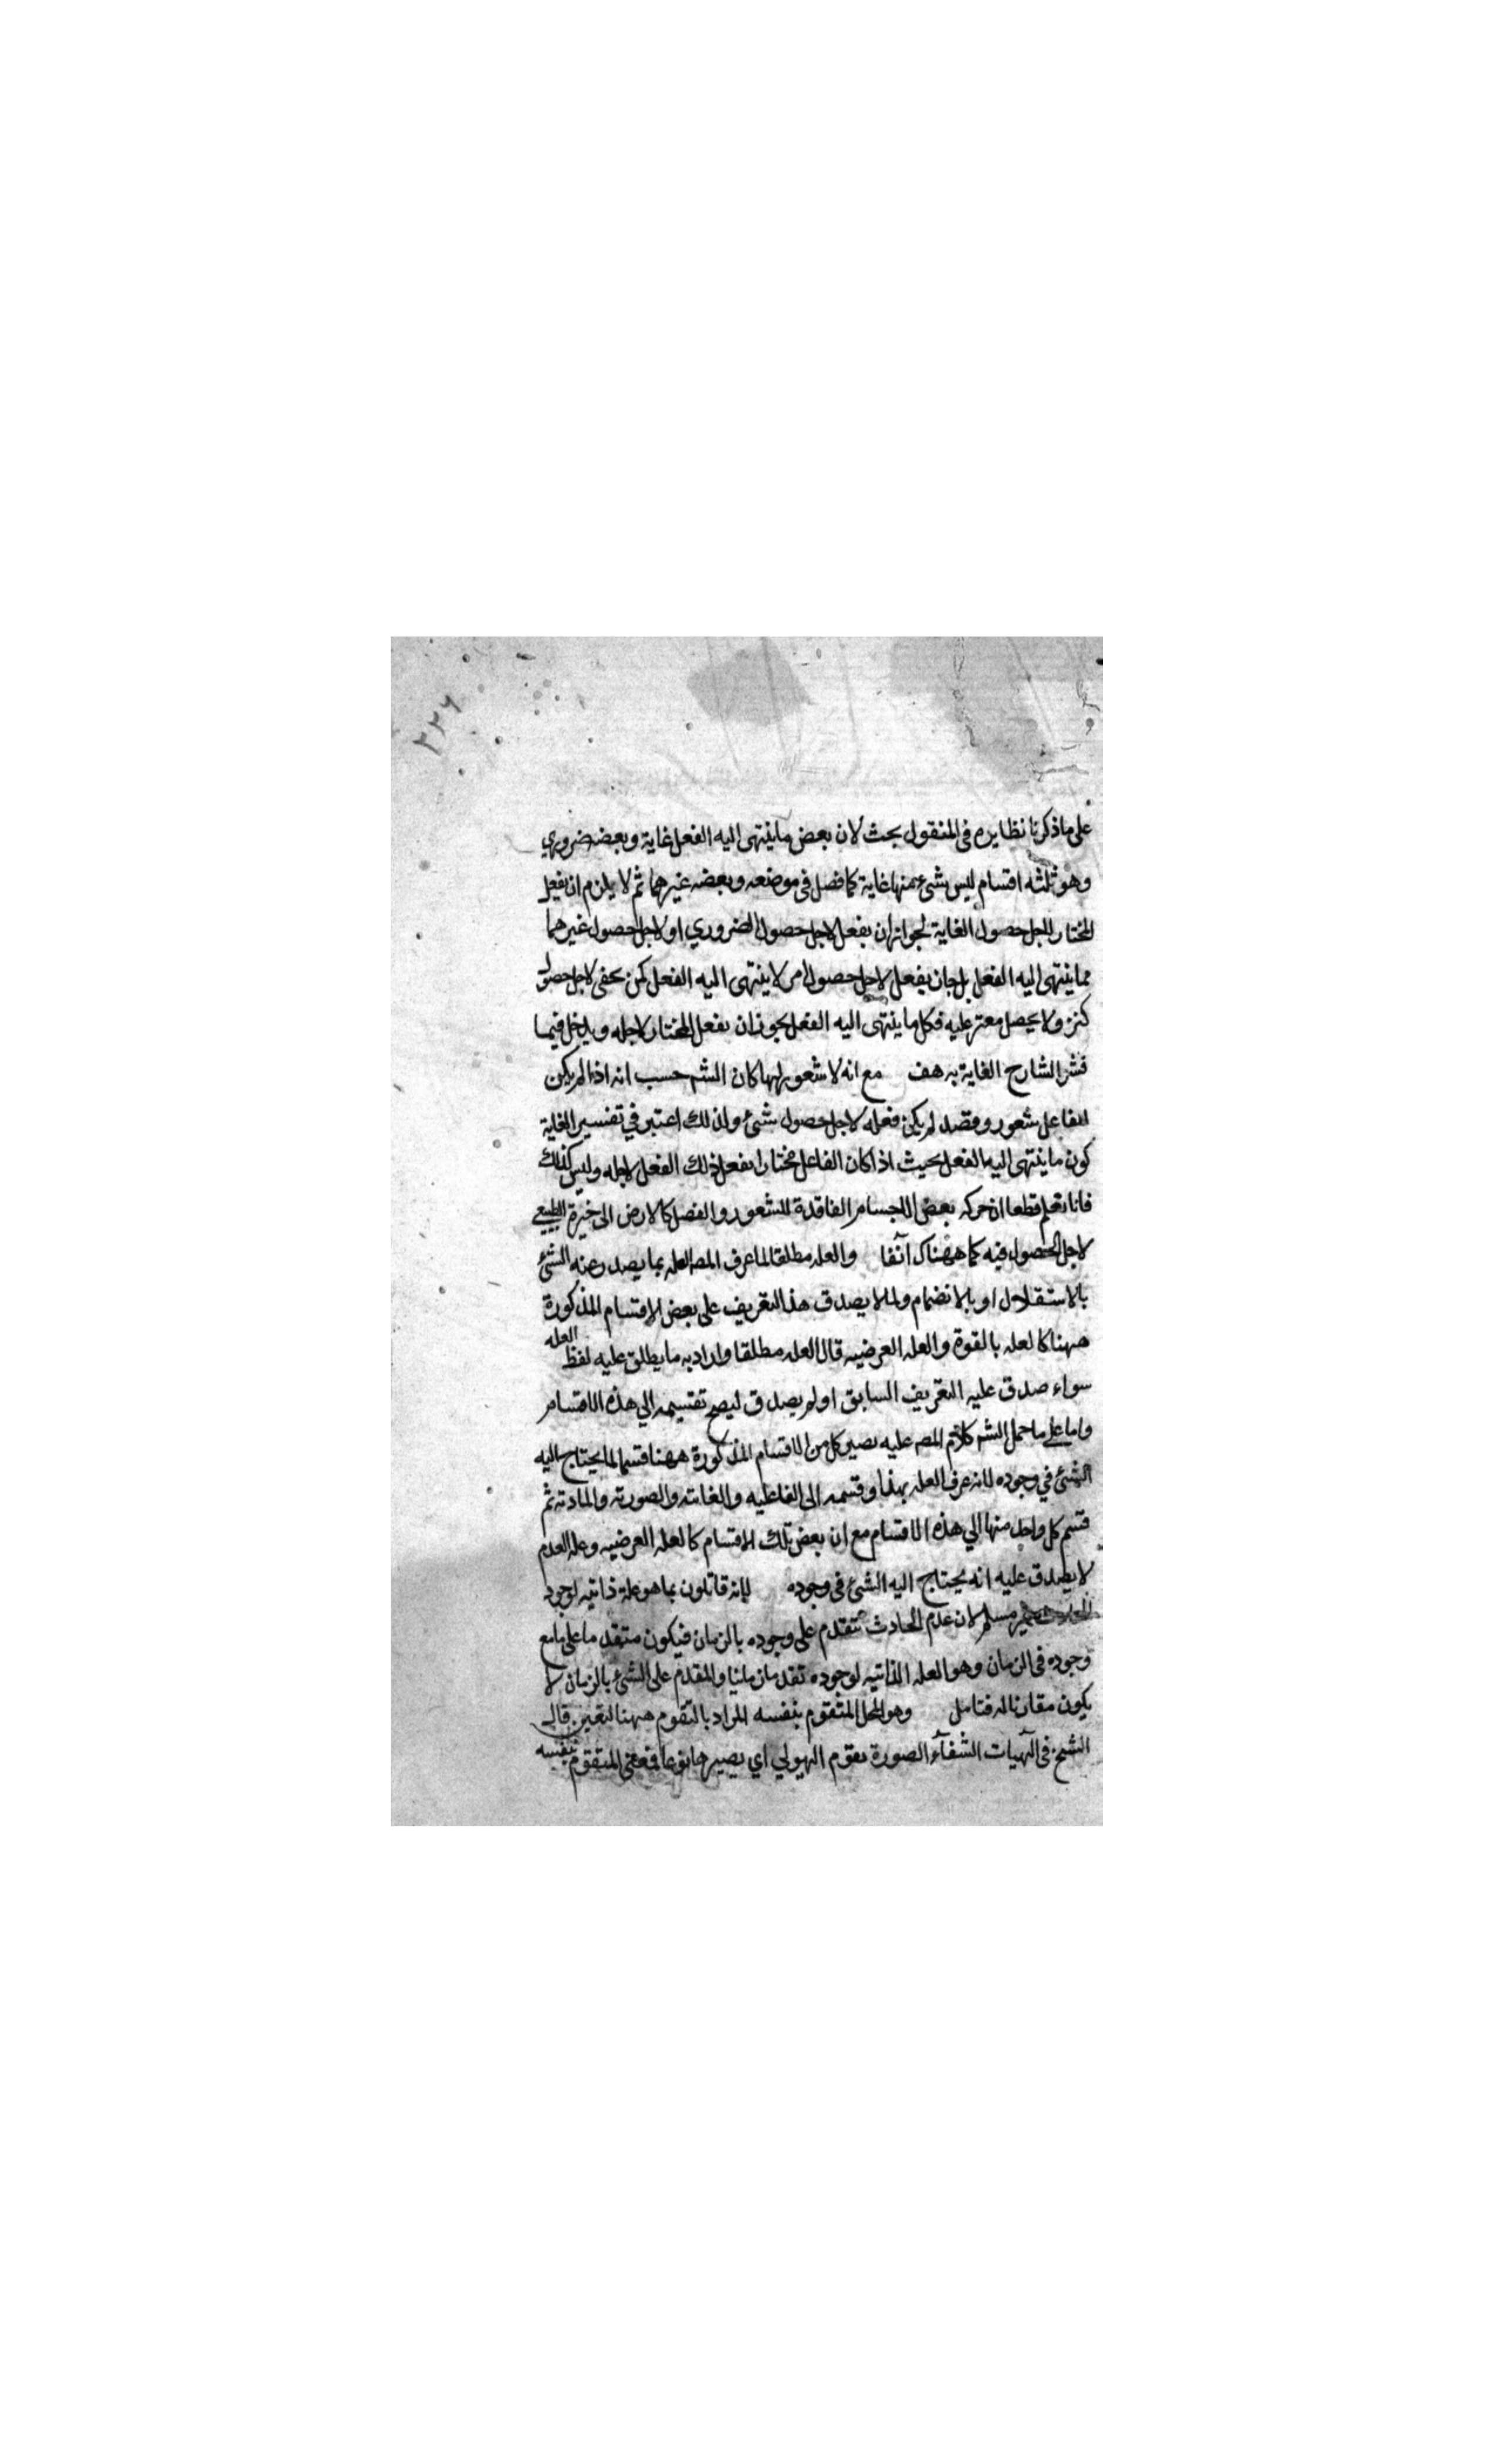 ٢٢٦
على ما ذكرنا نظايره في المنقول بحث لان بعض ما ينتهى اليه الفعل غاية وبعضه ضروري
وهو ثلثه اقسام ليس شئ منها غاية كما فصل في موضعه وبعضه غيرهما ثم لا يلزم ان يفعل
المختار لاجل حصول الغاية لجواز ان يفعل لاجل حصول الضروري او لاجل حصول غيرهما
مما ينتهى اليه الفعل بل جاز ان يفعل لاجل حصول امر لا ينتهى اليه الفعل كمن يحفر لاجل حصول
كنز ولا يحصل معثر عليه فكل ما ينتهى اليه الفعل يجوز ان يفعل المختار لاجله ويدخل فيما
فسر الشارح الغاية به هف مع انه لا شعور لها كان الشم حسب انه اذا لم يكن
للفاعل شعور وقصد لم يكن فعله لاجل حصول شئ ولذلك اعتبر في تفسير الغاية
كون ما ينتهى اليه الفعل بحيث اذا كان الفاعل مختارا يفعل ذلك الفعل لاجله وليس كذلك
فانا نعلم قطعا ان حركه بعض الاجسام الفاقدة للشعور والفصل كالارض الى خيرة الطبيعي
لاجل الحصول فيه كما ههناك آنفا والعله مطلقا لما عرف المصه العله بما يصدر عنه الشئ
بالاستقلال او بالانضمام ولما لا يصدق هذا التعريف على بعض الاقسام المذكورة
ههنا كالعله بالقوة والعله العرضيه قال العله مطلقا واراد به ما يطلق عليه لفظ العله
سواء صدق عليه التعريف السابق او لم يصدق ليصح تقسيمه الي هذه الاقسام
واما على ما حمل الشم كلام المصه عليه يصير كل من الاقسام المذكورة ههنا قسما لما يحتاج اليه
الشئ في وجوده لانه عرف العله بهذا وقسمه الى الفاعليه والغائته والصورته والمادته ثم
قسم كل واحد منها الي هذه الاقسام مع ان بعض تلك الاقسام كالعله العرضيه وعله العدم
لا يصدق عليه انه يحتاج اليه الشئ فى وجوده لانه قائلون بما هو علة ذاتيه لوجود
غير مسلم لان عدم الحادث متقدم على وجوده بالزمان فيكون متقدما على ما مع
وجوده فى الزمان وهو العله الذاتيه لوجوده تقدما زمانيا والمقدم على الشئ بالزمان لا
يكون مقارنا له فتامل وهو المحل المتقوم بنفسه المراد بالتقوم ههنا التعين قال
الشيخ فى الهيات الشفآء الصورة يقوم الهيولي اي يصيرها نوعا فمعنى المتقوم بنفسه